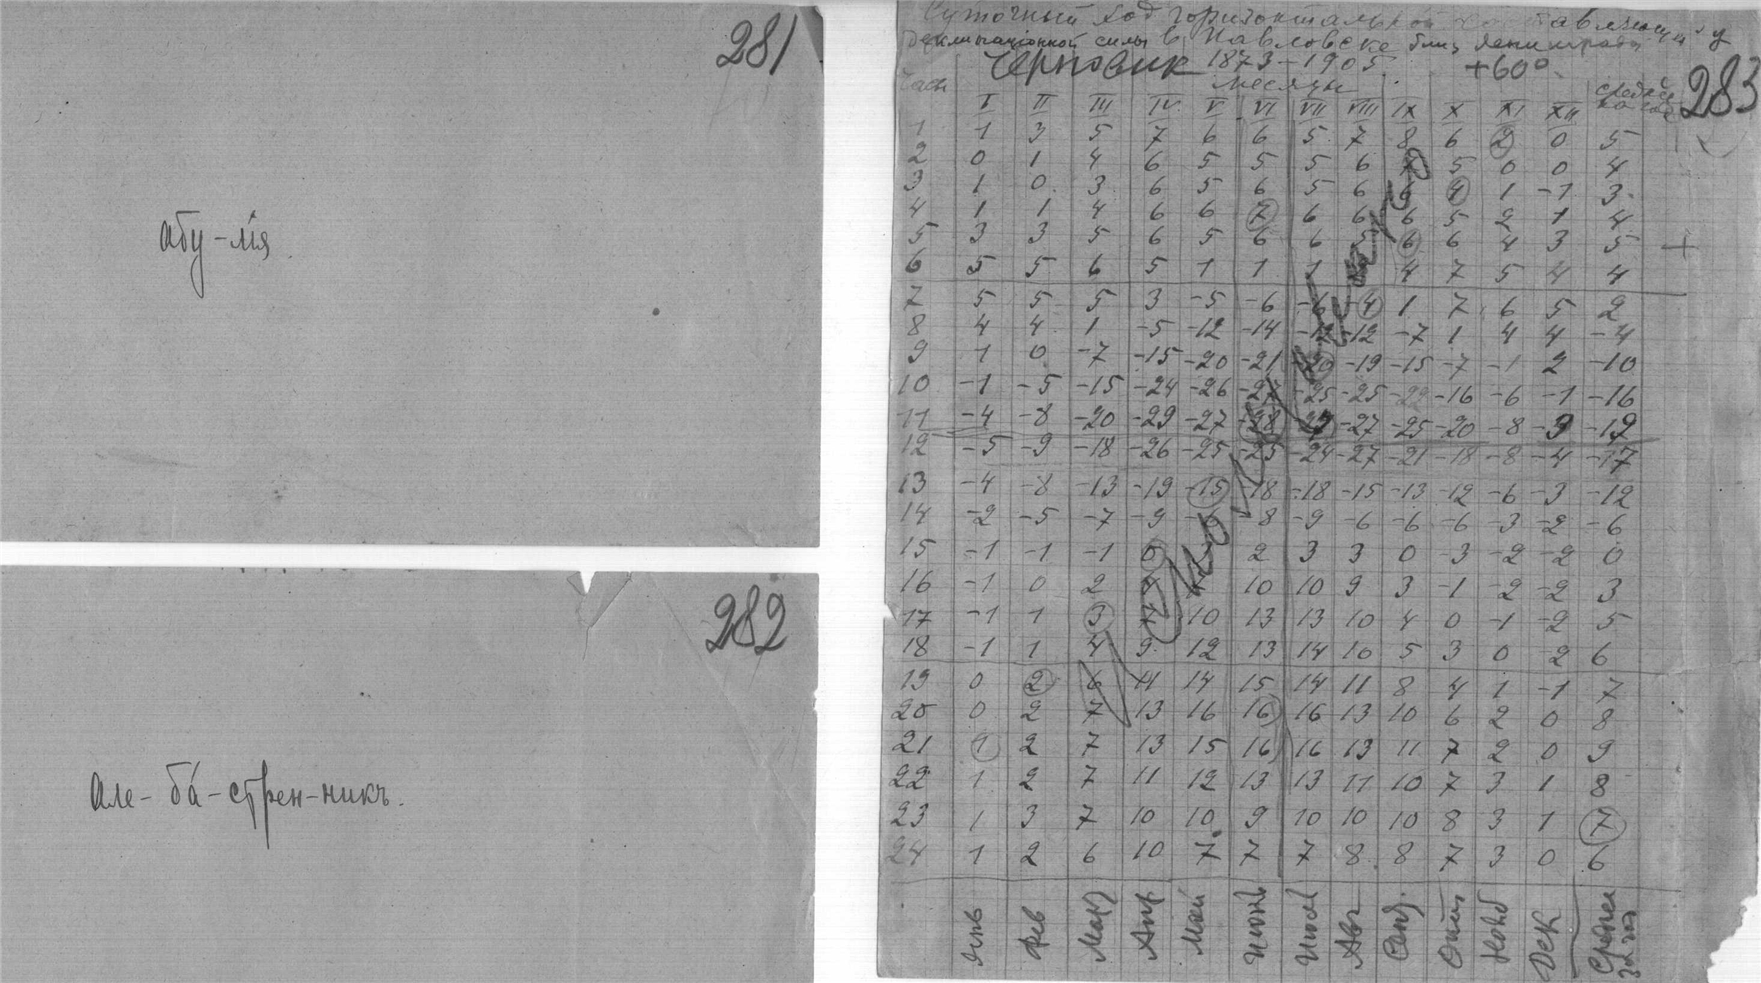 281
абу-лія
282
Але-ба́-стрен-никъ.
283
Суточный ход горизонтальной составляющей
силы в Павловске близ Ленинграда
Черновик 1873-1905 +60°
Часы месяцы
I II III IV V VI VII VIII IX X XI XII
1 1 3 5 7 6 6 5 7 8 6 2 0 5
2 0 1 4 6 5 5 5 6 5 0 0 4
3 1 0 3 6 5 6 5 6 6 4 1 -1 3
4 1 1 4 6 6 7 6 6 6 5 2 1 4
5 3 3 5 6 5 6 6 6 6 4 3 5
6 5 5 6 5 1 1 1 4 7 5 4 4
7 5 5 5 3 -5 -6 -6 4 1 7 6 5 2
8 4 4 1 -5 -12 -14 -12 -7 1 4 4 -4
9 1 0 -7 -15 -20 -21 -20 -19 -15 -7 -1 2 -10
10 -1 -5 -15 -24 -26 -27 -25 -25 -22 -16 -6 -1 -16
11 -4 -8 -20 -29 -27 -28 -27 -25 -20 -8 -3 -19
12 -5 -9 -18 -26 -25 -25 -24 -27 -21 -18 -8 -4 -17
13 -4 -8 -13 -19 -15 18 -18 -15 -13 -12 -6 -3 -12
14 -2 -5 -7 -9 -8 -9 -6 -6 -6 -3 -2 -6
15 -1 -1 -1 0 2 3 3 0 -3 -2 -2 0
16 -1 0 2 10 10 9 3 -1 -2 -2 3
17 -1 1 3 7 10 13 13 10 4 0 -1 -2 5
18 -1 1 4 9 12 13 14 10 5 3 0 -2 6
19 0 2 6 11 14 15 14 11 8 4 1 -1 7
20 0 2 7 13 16 16 16 13 10 6 2 0 8
21 1 2 7 13 15 16 16 13 11 7 2 0 9
22 1 2 7 11 12 13 13 11 10 7 3 1 8
23 1 3 7 10 10 9 10 10 10 8 3 1 7
24 1 2 6 10 7 7 7 8 8 7 3 0 6
Янв Фев Март Апр Май Июнь Июль Авг Сент Окт Нояб Дек Средн за год